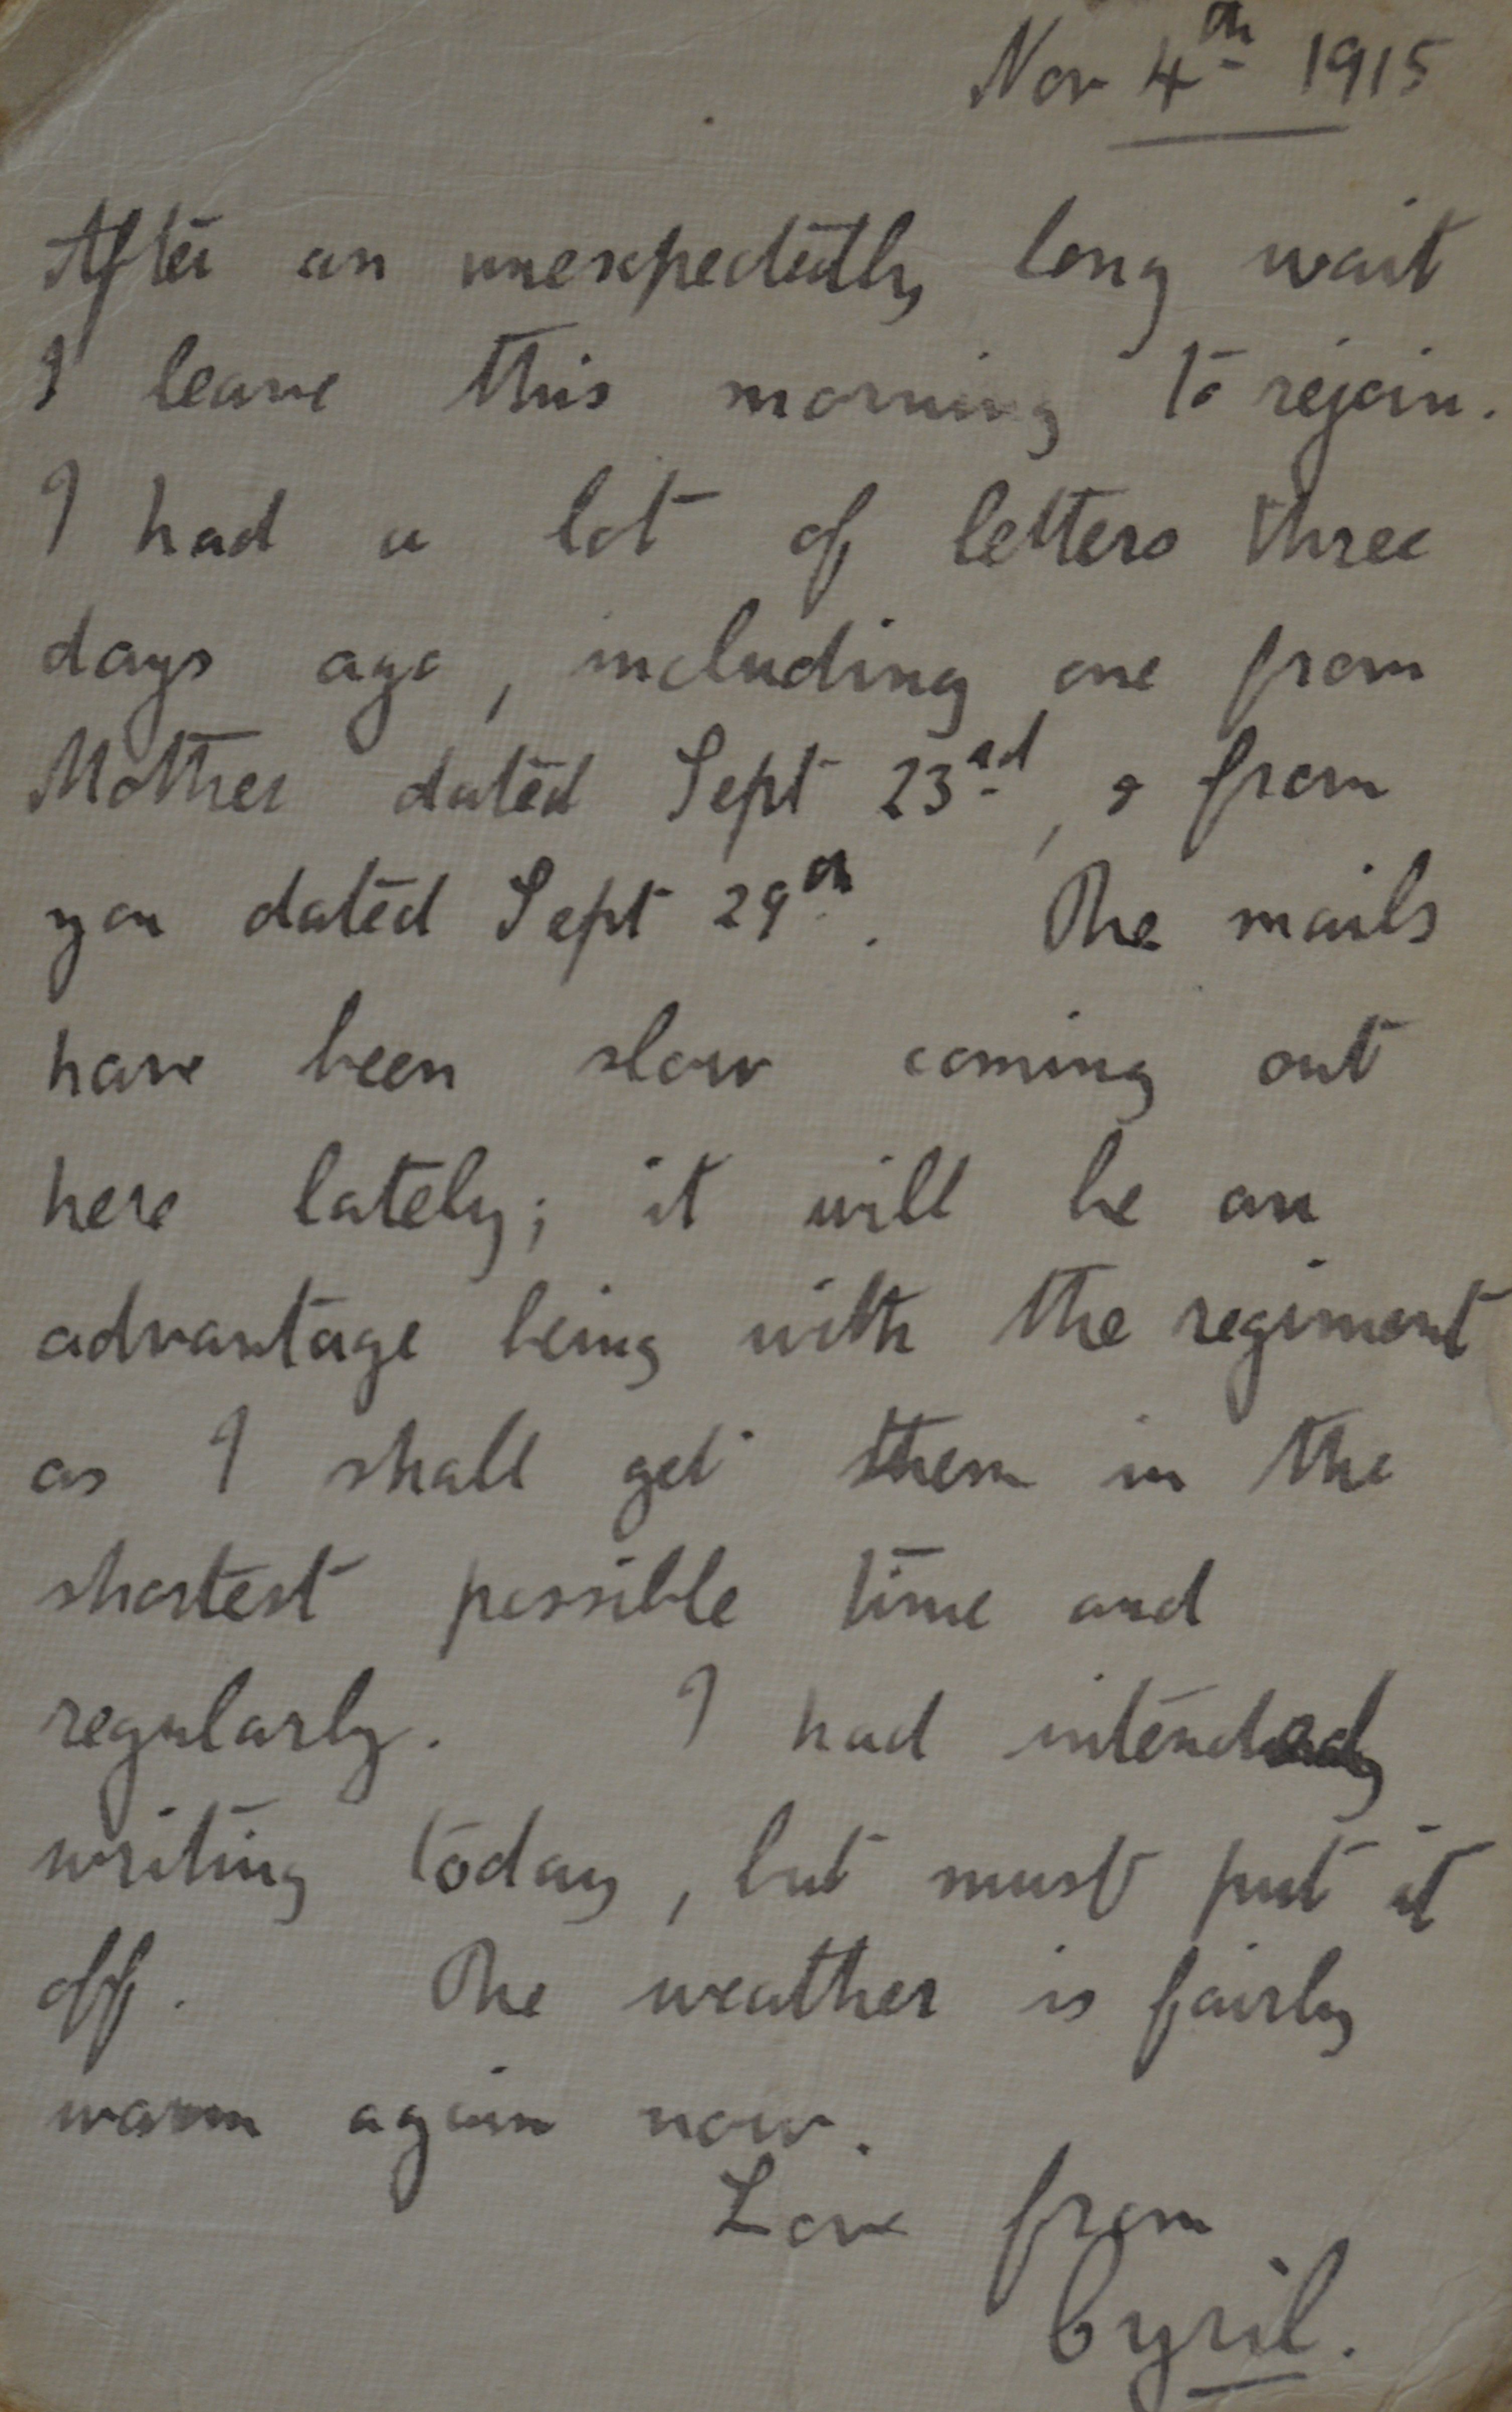 Nov 4th 1915
After an unexpectedly long wait
I leave this morning to rejoin.
I had a lot of letters three
days ago, including one from
Mother dated Sept 23rd, & from
you dated Sept 29th. The mails
have been slow coming out
here lately; it will be an
advantage being with the regiment
as I shall get them in the
shortest possible time and
regularly. I had intended
writing today, but must put it
off. The weather is fairly
warm again now.
Love from
Cyril.